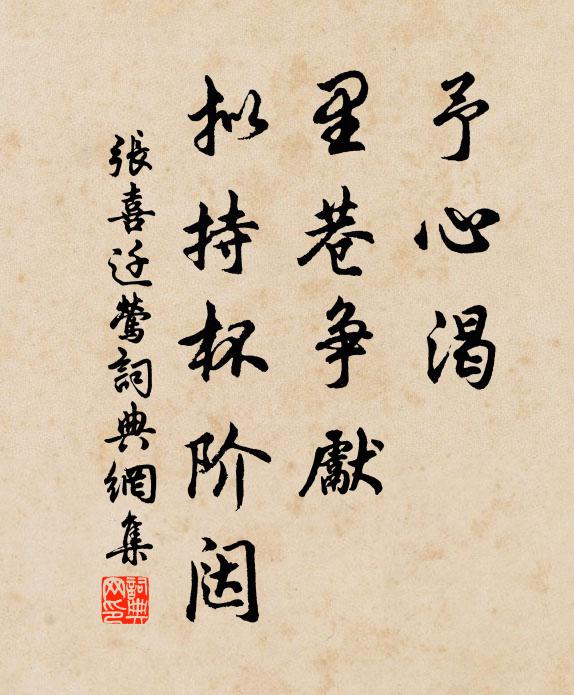 予心渴
里巷争獻
拟持杯阶闼
張喜迁鶯詞典網集
詞典網印